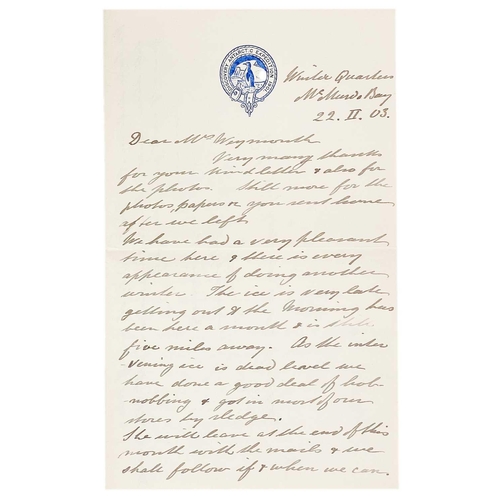 DISCOVERY ANTARCTIC EXPEDITION 1901
Winter Quarters
McMurdo Bay
22. II. 03.
Dear Mrs Weymouth
Very many thanks
for your kind letter & also for
the photos. Still more for the
photos, papers or you sent home
after we left
We have had a very pleasant
time here & there is every
appearance of doing another
winter. The ice is very late
getting out & the Morning has
been here a month & is still
five miles away. As the inter
-vening ice is dead level we
have done a good deal of hob-
-nobbing & got in most of our
stores by sledge.
She will leave at the end of this
month with the mails & we
shall follow if & when we can.